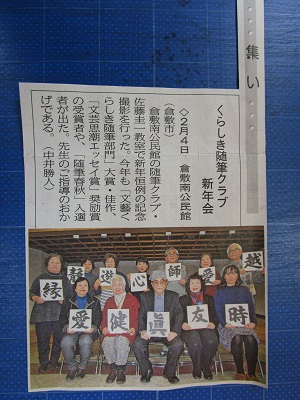 集い
くらしき随筆クラブ
新年会
◇2月4日　倉敷南公民館
(倉敷市)
倉敷南公民館の随筆クラブ・
佐藤圭一教室で新年恒例の記念
撮影を行った。今年も「文藝く
らしき随筆部門」大賞・佳作、
「文芸思潮エッセイ賞」奨励賞
の受賞者や、「随筆春秋」入選
者が出た。先生のご指導のおか
げである。　(中井勝人)
縁 静 遊 心 師 愛 越
愛 健 眞 友 時